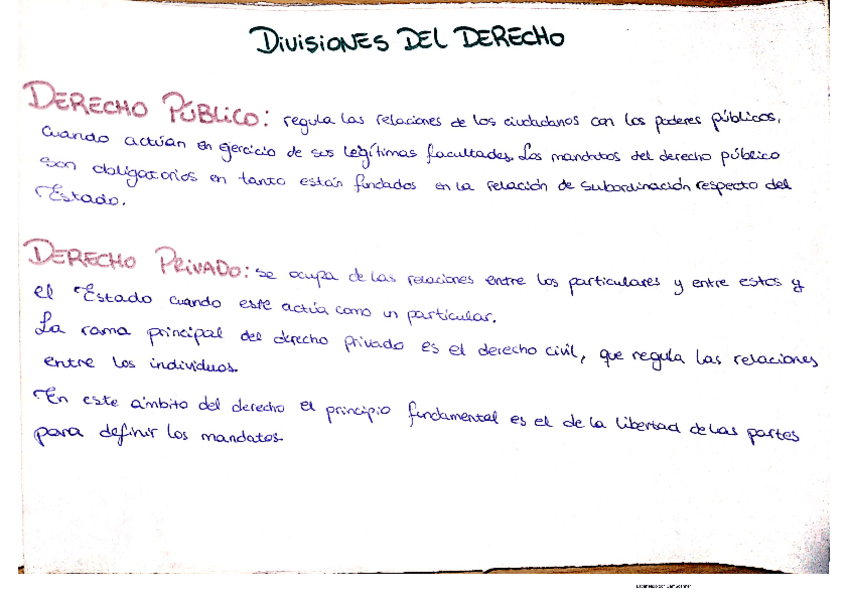 DIVISIONES DEL DERECHO
DERECHO PÚBLICO: regula las relaciones de los ciudadanos con los poderes públicos,
cuando actúan en ejercicio de sus legítimas facultades. Los mandatos del derecho público
son obligatorios en tanto están fundados en la relación de subordinación respecto del
Estado.
DERECHO PRIVADO: se ocupa de las relaciones entre los particulares y entre estos y
el Estado cuando este actúa como un particular.
La rama principal del derecho privado es el derecho civil, que regula las relaciones
entre los individuos.
En este ámbito del derecho el principio fundamental es el de la libertad de las partes
para definir los mandatos.